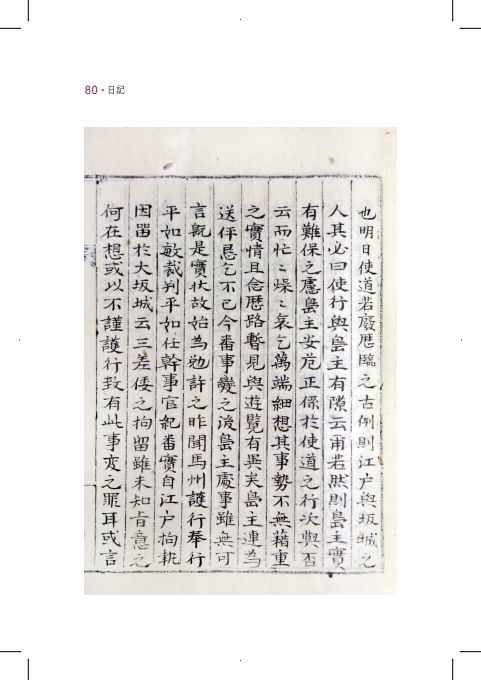 80 · 日記
也明日使道若廢歷臨之古例則江户與坂城之
人其必曰使行與島主有隙云甫若然則島主實
有難保之慮島主安危正係於使道之行次與否
云而忙〻燥〻哀乞萬端細想其事勢不無藉重
之實情且念歷路暫見與遊覽有異矣島主連為
送伻恳乞不已今番事變之後島主處事雖無可
言旣是實狀故始為勉許之昨聞馬州護行奉行
平如敏裁判平如仕幹事官紀番實自江户拘執
因留於大坂城云三差倭之拘留雖未知旨意之
何在想或以不謹護行致有此事变之罪耳或言